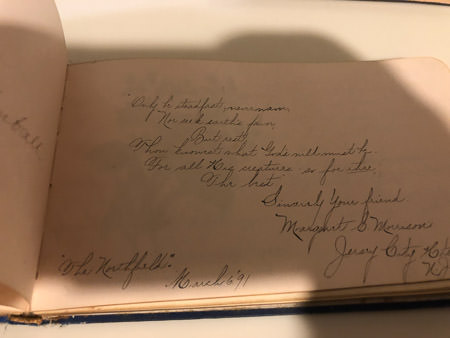 "Only be steadfast, never
Nor seek earth's
But rest
Thou knowest what God's will must be
For all His creatures so for thee
The best
Sincerely Your friend
Margaret S Morrison
Jersey City
N.J.
"The Northfield".
March 6 '91